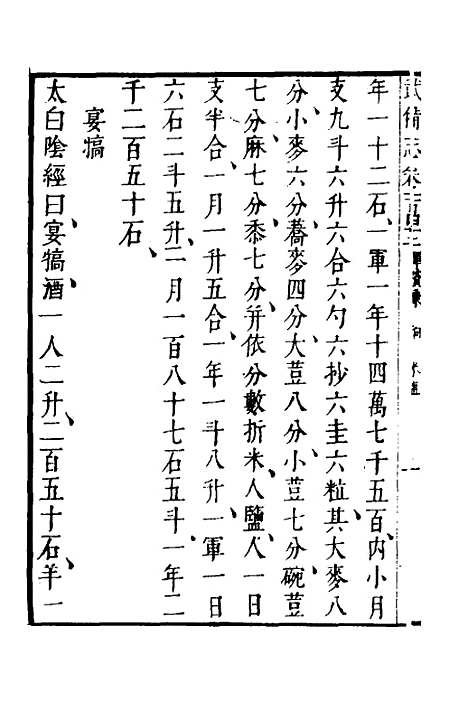 武備志卷一百四十二 軍資乘 餉
年一十二石一軍一年十四萬七千五百內小月
支九斗六升六合六勺六抄六圭六粒其大麥八
分小麥六分蕎麥四分大荳八分小荳七分碗荳
七分麻七分黍七分并依分數折米人鹽人一日
支半合一月一升五合一年一斗八升一軍一日
六石二斗五升二月一百八十七石五斗一年二
千二百五十石
宴犒
太白陰經曰宴犒酒一人二升二百五十石羊一